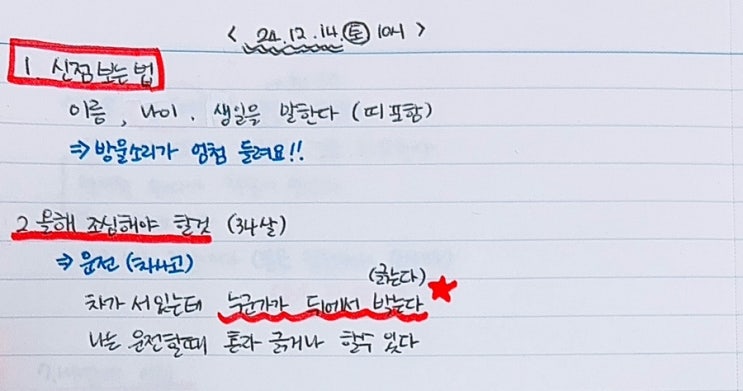 < 24.12.14.(토) 10시 >
1 신점 보는 법
이름, 나이, 생일을 말한다 (띠 포함)
⇒ 방울소리가 엄청 들려요!!
2. 올해 조심해야 할것 (34살)
⇒ 운전 (차사고)
(긁는다)
차가 서있는데 누군가가 뒤에서 박는다 ★
나는 운전할때 혼자 긁거나 할수 있다